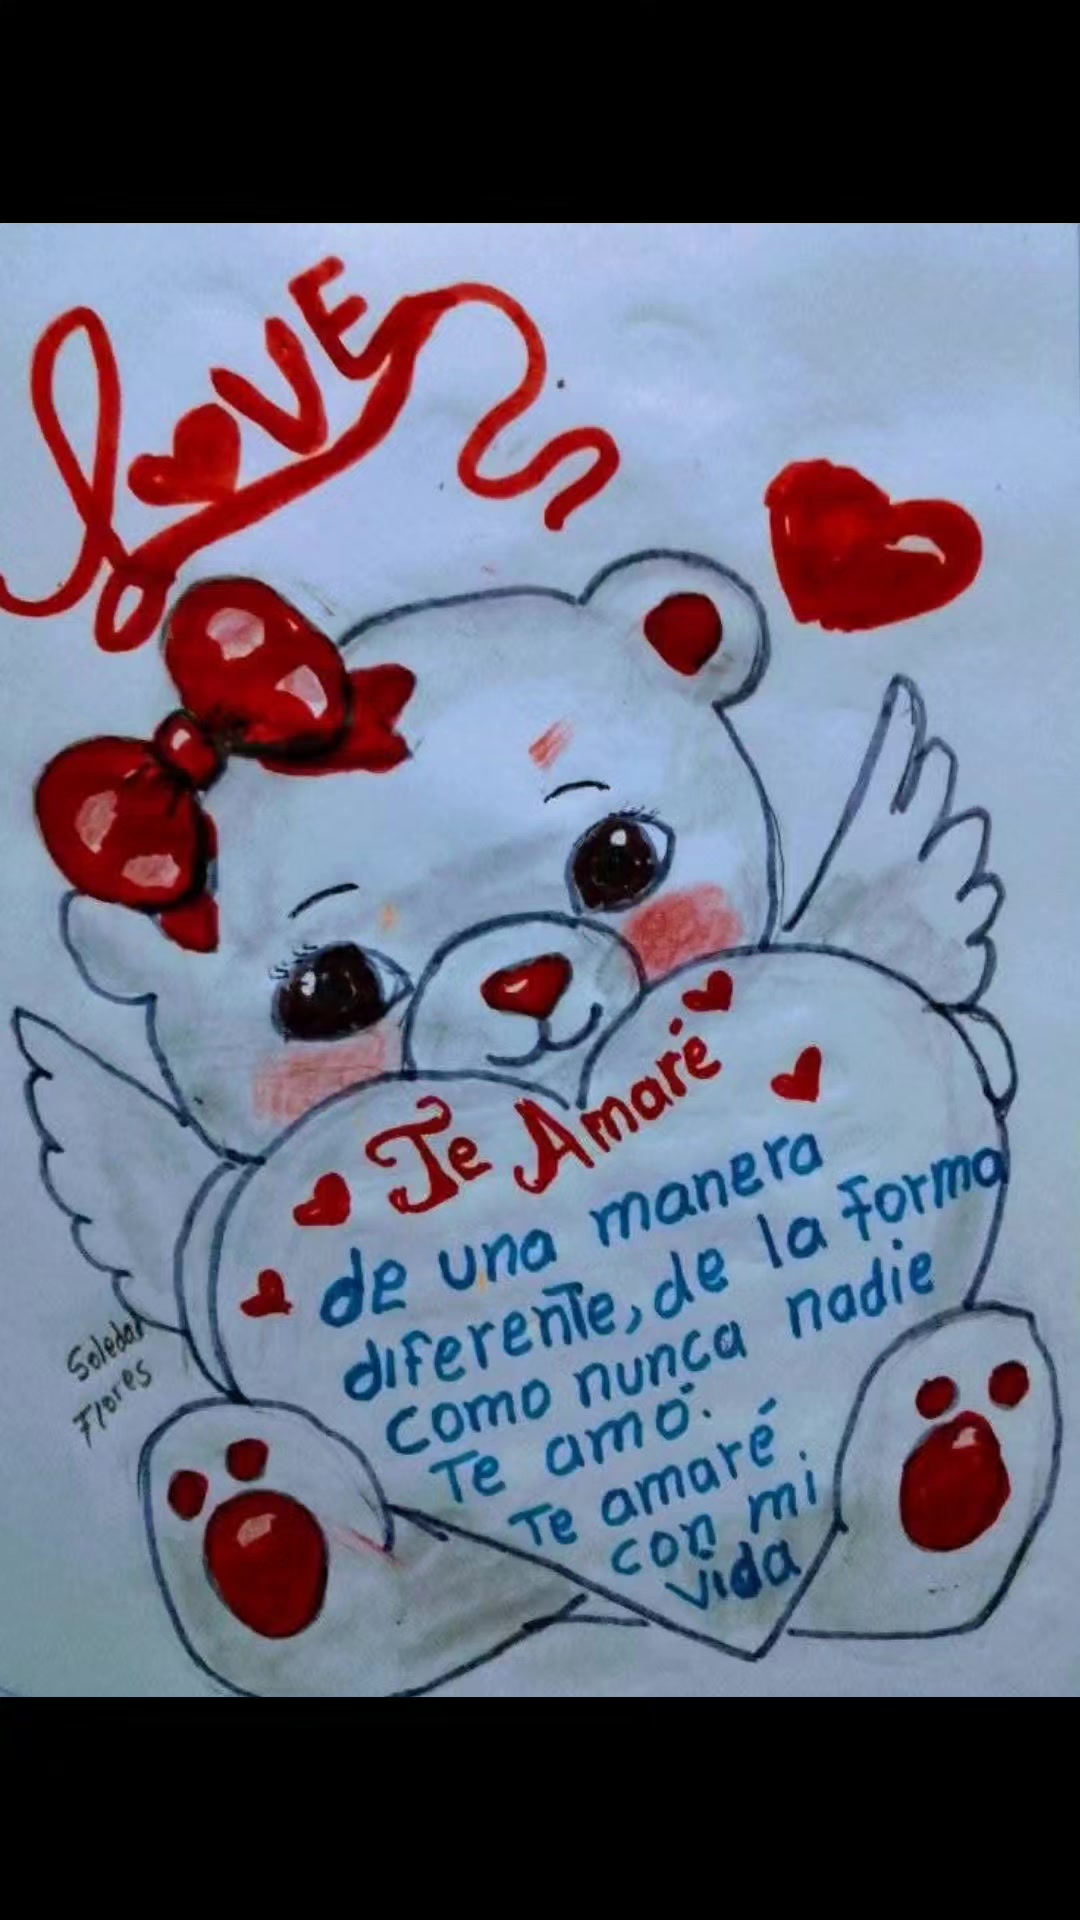 LOVE
Te Amaré
de una manera
diferente, de la forma
como nunca nadie
Te amo.
Te amaré
con mi
vida
Soledad
Flores